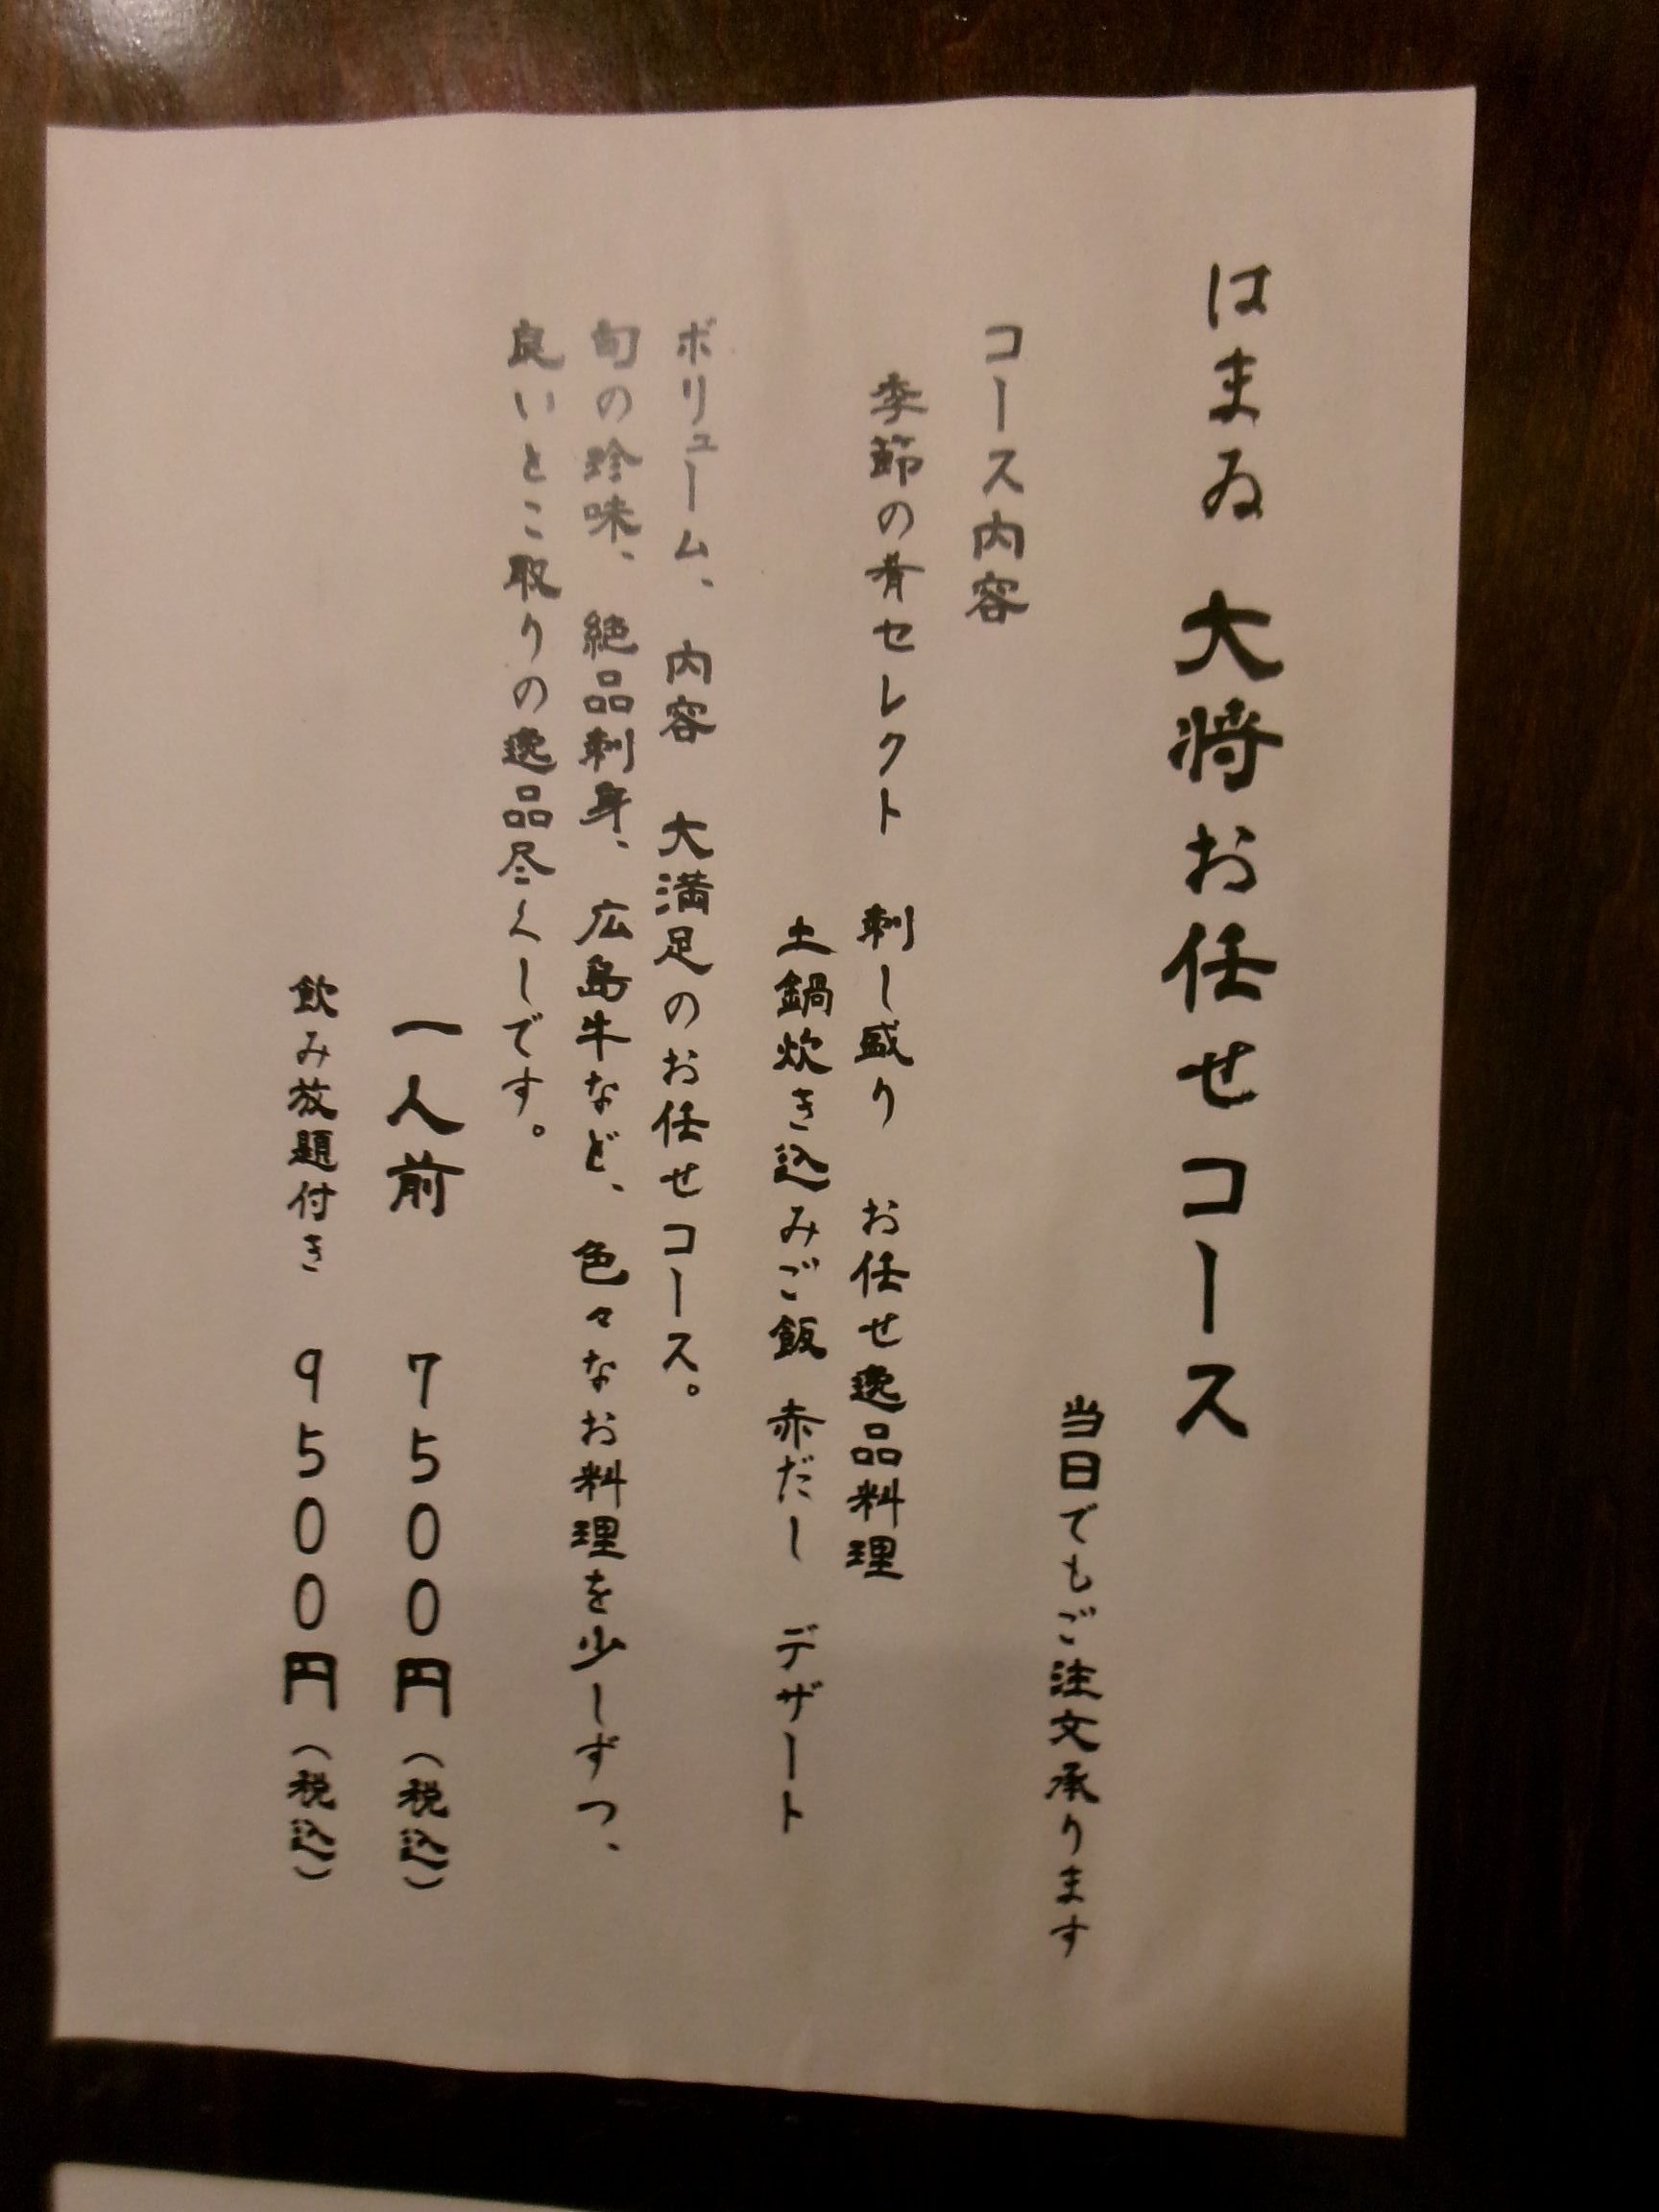 はまゐ 大将お任せコース
当日でもご注文承ります
コース内容
季節の肴セレクト 刺し盛り お任せ逸品料理
土鍋炊き込みご飯 赤だし デザート
ボリューム、内容 大満足のお任せコース。
旬の珍味、絶品刺身、広島牛など、色々なお料理を少しずつ、
良いとこ取りの逸品尽くしです。
一人前 7500円（税込）
飲み放題付き 9500円（税込）